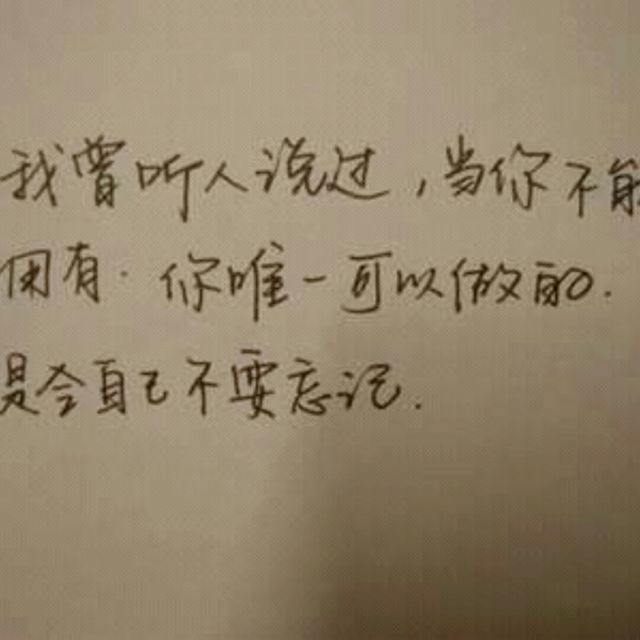 我曾听人说过，当你不能
拥有。你唯一可以做的。
是令自己不要忘记。